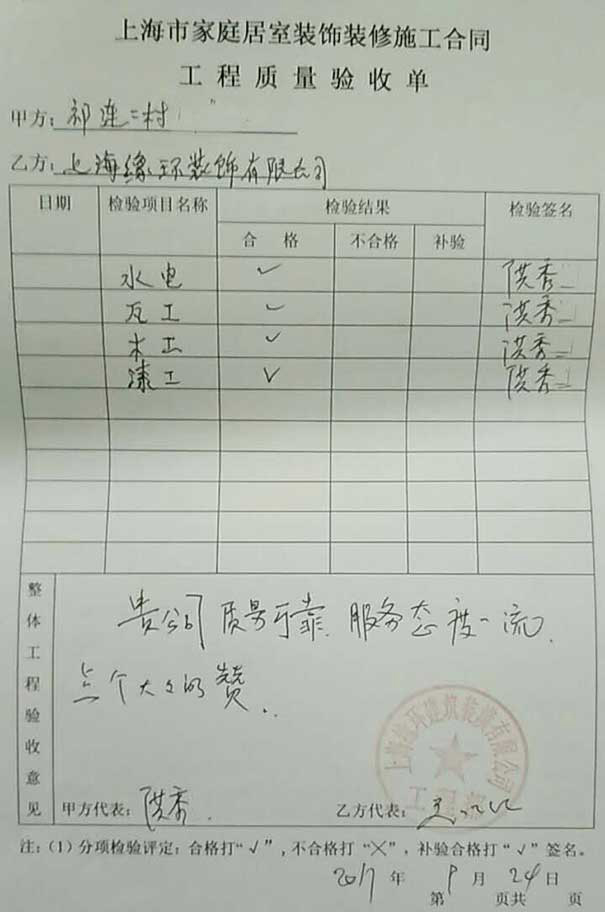 上海市家庭居室装饰装修施工合同
工程质量验收单
甲方：祁连二村
乙方：上海缘环装饰有限公司
日期 检验项目名称 检验结果 检验签名
合格 不合格 补验
水电 ✓ 洪秀
瓦工 ✓ 洪秀
木工 ✓ 洪秀
漆工 ✓ 洪秀
整体工程验收意见
贵公司质量可靠 服务态度一流.
点个大大的赞..
上海缘环建筑装潢有限公司
甲方代表：洪秀.
乙方代表：
注：（1）分项检验评定：合格打“√”，不合格打“╳”，补验合格打“√”签名。
2017年9月24日
第 页共 页